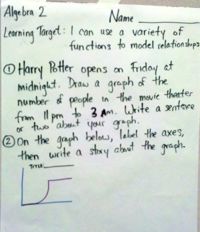 Algebra 2
Name
Learning Target: I can use a variety of
functions to model relationships
① Harry Potter opens on Friday at
midnight. Draw a graph of the
number of people in the movie theater
from 11 pm to 3 AM. Write a sentence
or two about your graph.
② On the graph below, label the axes,
then write a story about the graph.